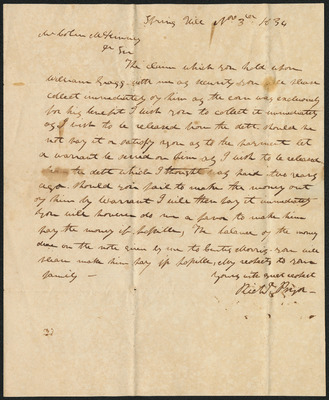 Spring Hill Novr 3rd 1834
Mr Colin McKenney
Sir
The claim which you hold upon
William Gragg with me as security you will please
collect immediately of him as the corn was exclusively
for his benefit I wish you to collect it immediately
as I wish to be released from the debt, should he
not pay it or satisfy you as to the payment let
a warrant be served on him as I wish to be released
from the debt which I thought was paid two years
ago should you fail to make the money out
of him by warrant I will then pay it immediately
you will however do me a favor to make him
pay the money if possible, The balance of the money
due on the note given by me to Curtis Morris you will
please make him pay if possible, my respects to your
family — Yours with great respect
Richd Pryor —